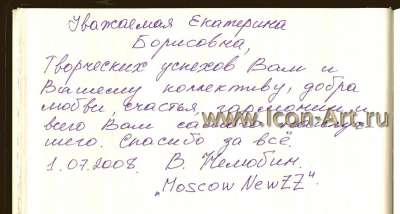 Уважаемая Екатерина
Борисовна,
Творческих успехов Вам и
Вашему коллективу, добра
любви, счастья, гармонии и
www.Icon-Art.ru
всего Вам самого наилуч-
шего. Спасибо за всё.
1.07.2008. В. Нелюбин.
„Moscow NewZZ".